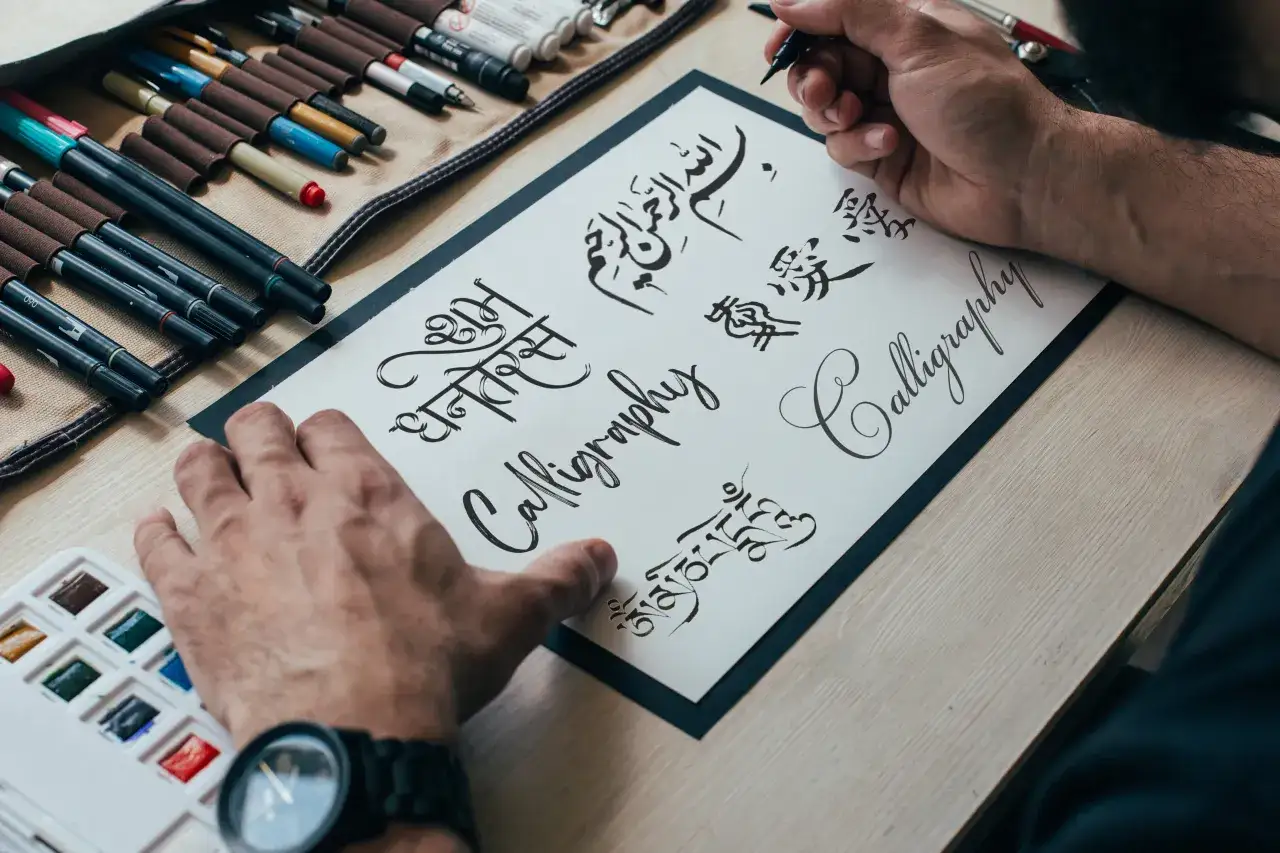 بسم الله الرحمن الرحيم
愛愛愛
शुभ
धनतेरस
Calligraphy
Calligraphy
ༀ་མ་ཎི་པདྨེ་ཧཱུྃ